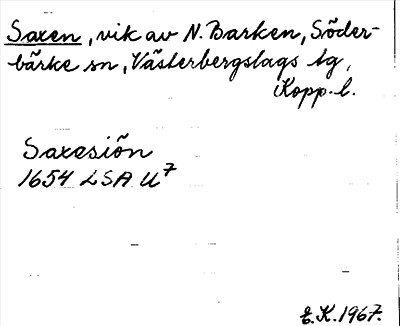 Saxen, vik av N. Barken, Söder-
bärke sn, Västerbergslags tg,
Kopp. l.
Saxesiön
1654 LSA U7
E.K. 1967.